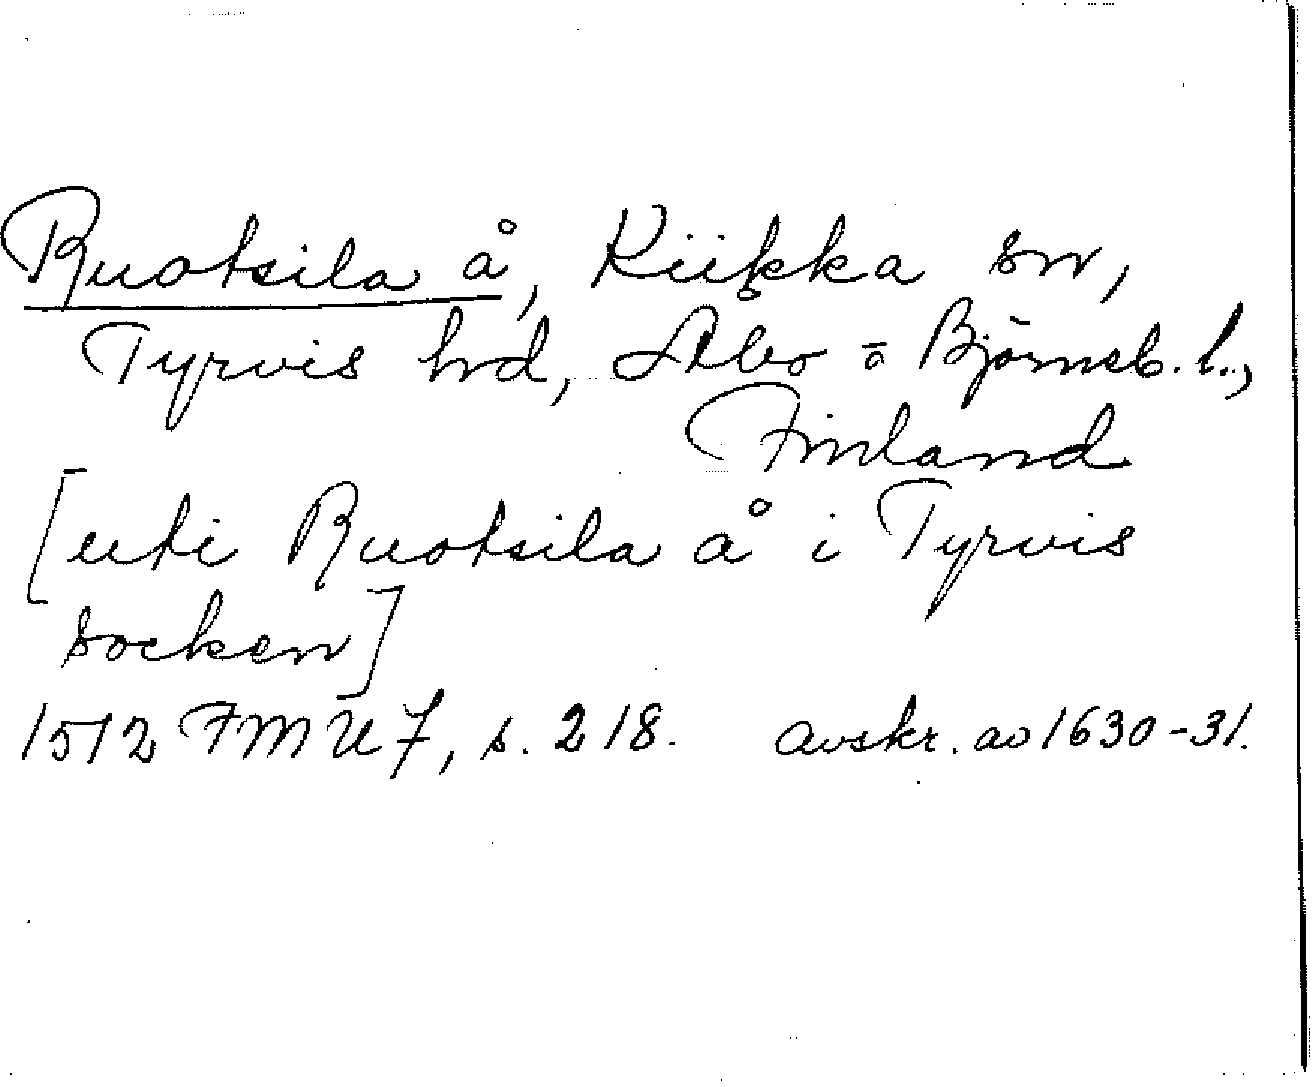 Ruotsila å, Kiikka sn,
Tyrvis hrd, Åbo o Björneb. l.,
Finland
[uti Ruotsila å i Tyrvis
socken]
1512 FMU 7, s. 218. avskr. av 1630-31.